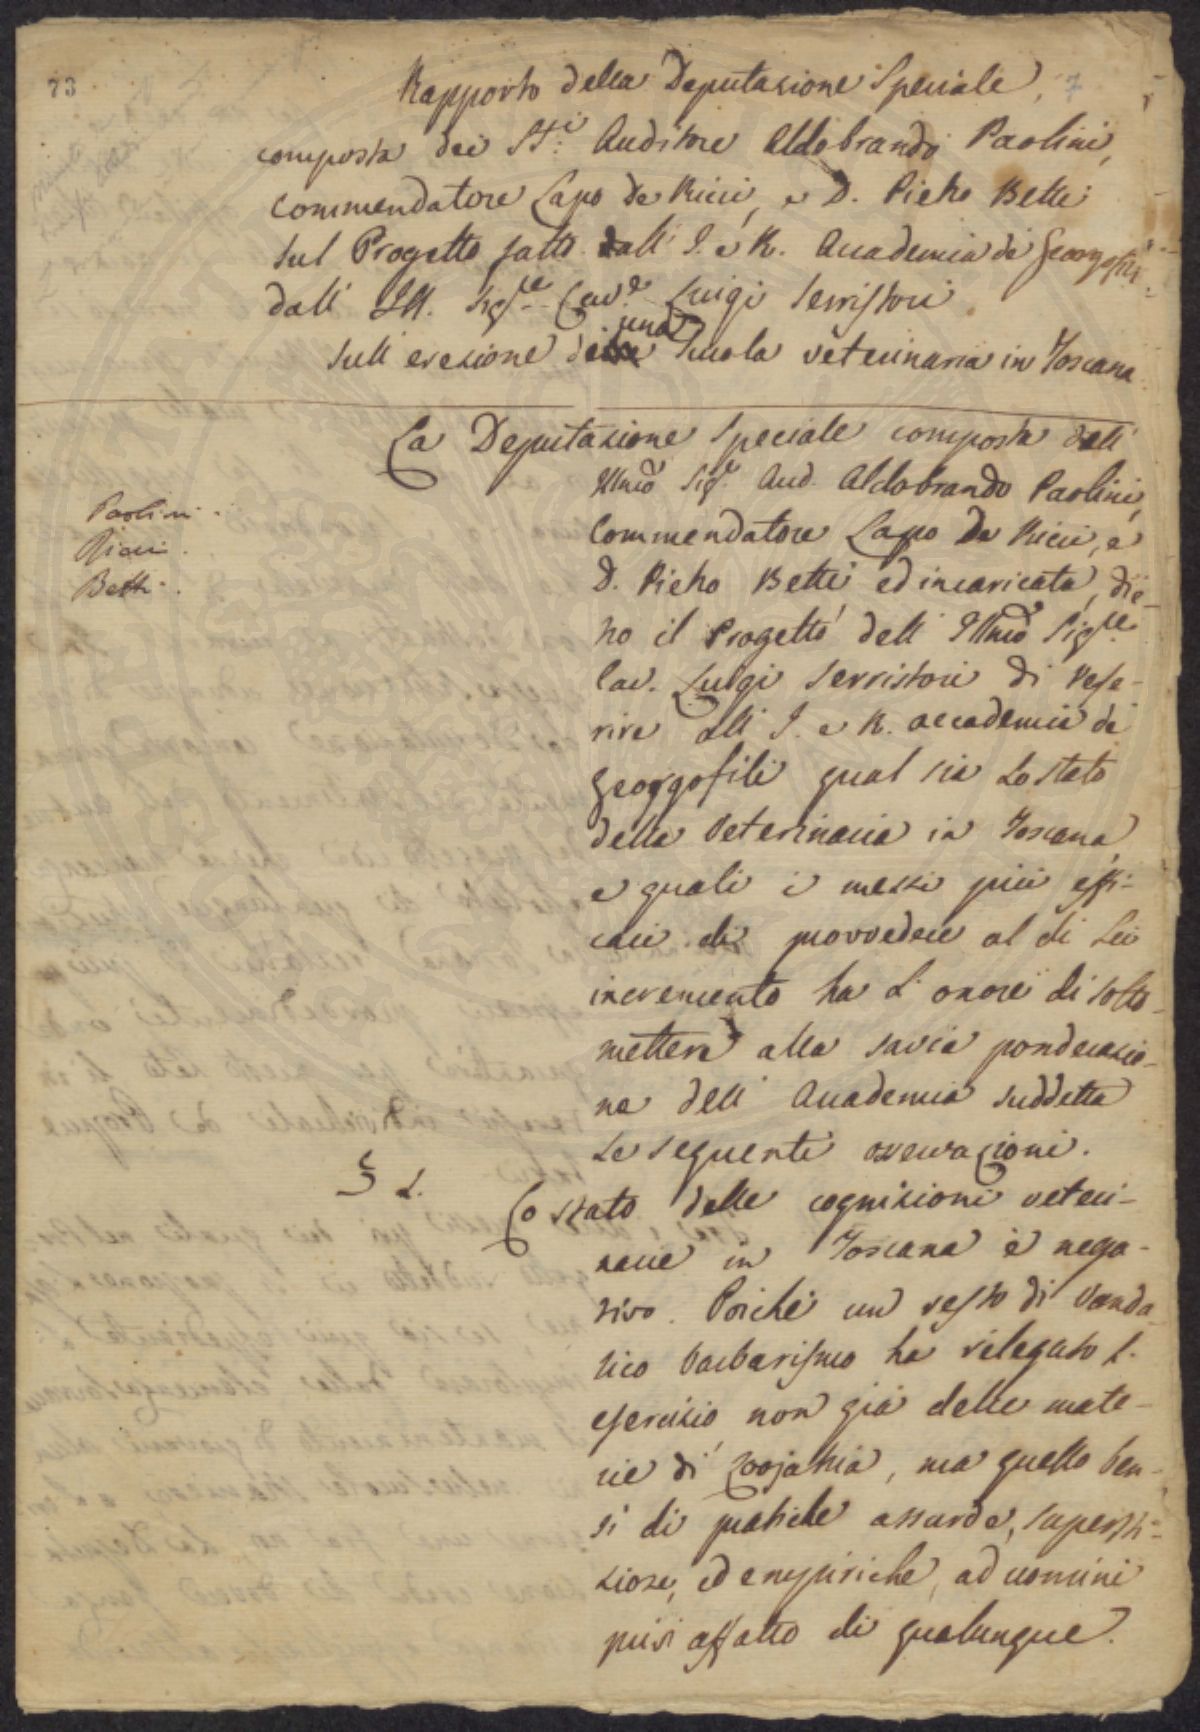 73
7
Rapporto della Deputazione Speciale,
composta dei SSri. Auditore Aldobrando Paolini,
Commendatore Lapo de Ricci, e D. Pietro Betti
sul Progetto fatto dall' I. e R. Accademia de Georgofili
dall' Ill. Sigre. Cave. Luigi Serristori
sull' erezione della una Scuola veterinaria in Toscana
La Deputazione Speciale composta dall'
Illmo Sigr. Aud. Aldobrando Paolini,
Commendatore Lapo De Ricci, e
D. Pietro Betti ed incaricata, die-
tro il Progetto dell' Illmo Sigre.
Cav. Luigi Serristori di refe-
rire all' I. e R. accademia de
Georgofili qual sia Lo stato
della Veterinaria in Toscana
e quali i mezzi più effi-
caci di provvedere al di Lei
incremento ha L'onore di sotto-
mettere alla savia ponderazio-
ne dell' Accademia suddetta
Le seguenti osservazioni.
Paolini.
Ricci.
Betti.
§ 1.
Lo stato delle cognizioni veteri-
narie in Toscana è nega-
tivo. Poiché un resto di Vanda-
lico barbarismo ha relegato l'
esercizio non già delle mate-
rie di Zoojatria, ma quello ben-
sì di pratiche assurde, supersti-
ziose, ed empiriche, ad uomini
privi affatto di qualunque